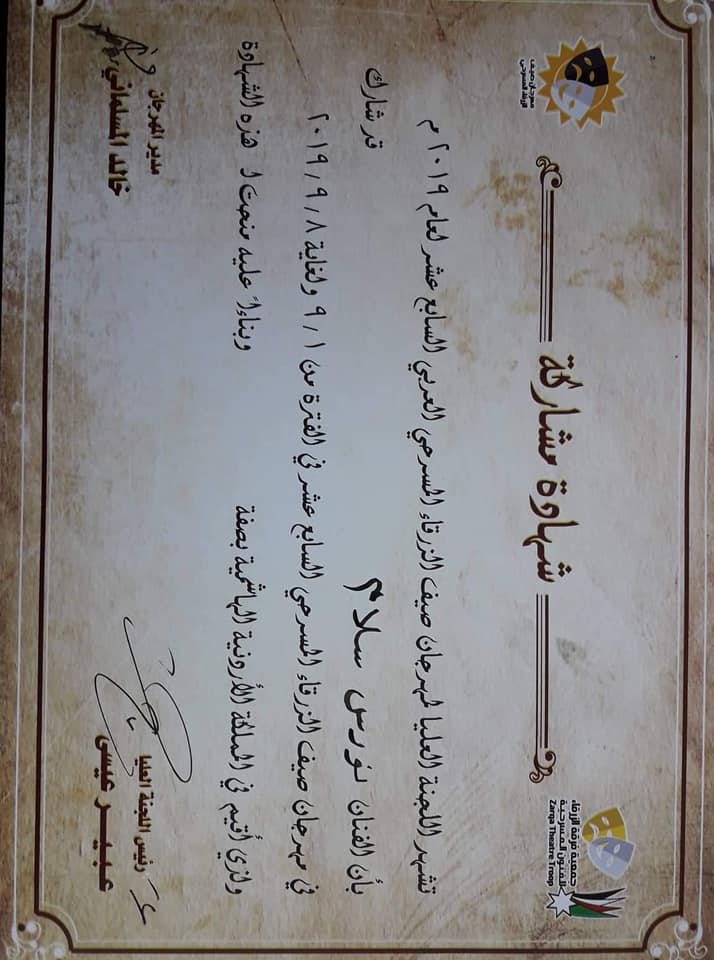 جمعية فرقة الزرقاء
للفنون المسرحية
Zarqa Theatre Troop
مهرجان صيف
الزرقاء المسرحي
شهادة مشاركة
تشهد اللجنة العليا لمهرجان صيف الزرقاء المسرحي العربي السابع عشر لعام ٢٠١٩ م
بأن الفنان نورس سلام قد شارك
في مهرجان صيف الزرقاء المسرحي السابع عشر في الفترة من ٩/١ ولغاية ٢٠١٩/٩/٨
والذي أقيم في المملكة الأردنية الهاشمية بصفة وبناءاً عليه منحت له هذه الشهادة
رئيس اللجنة العليا
عبير عيسى
مدير المهرجان
خالد المسلماني